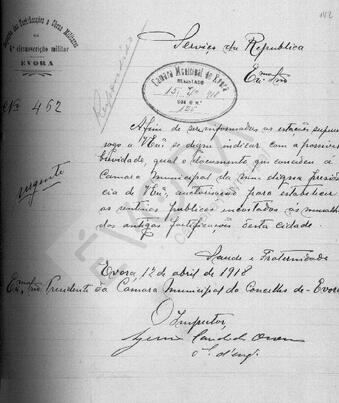 142
Inspecção das Fortificações e Obras Militares
4ª circumscripção militar
EVORA
Nº 462
Respondido
urgente
Serviço da Republica
Camara Municipal de Evora
Afim de ser informadas as estações
rogo a V.Exª se digne indicar com a possivel
brevidade, qual o documento que concedeu á
Camara Municipal da mui digna presiden
cia de V.Exª, auctorisação para estabelecer
as retretes publicas encostadas ás muralhas
das antigas fortificações desta cidade.
Saude e Fraternidade
Evora 12 de abril de 1918
Presidente da Câmara Municipal do Concelho de Evora
O Inspector,